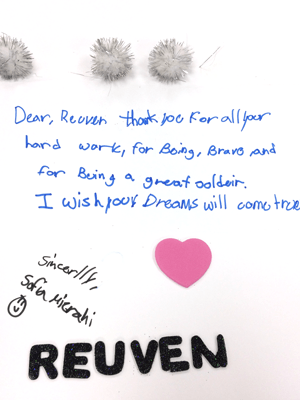 Dear, Reuven thank you for all your
hard work, for Being, Brave and
for Being a great soldeir.
I wish your Dreams will come true
Sincerlly,
Sofia Mizrahi
REUVEN